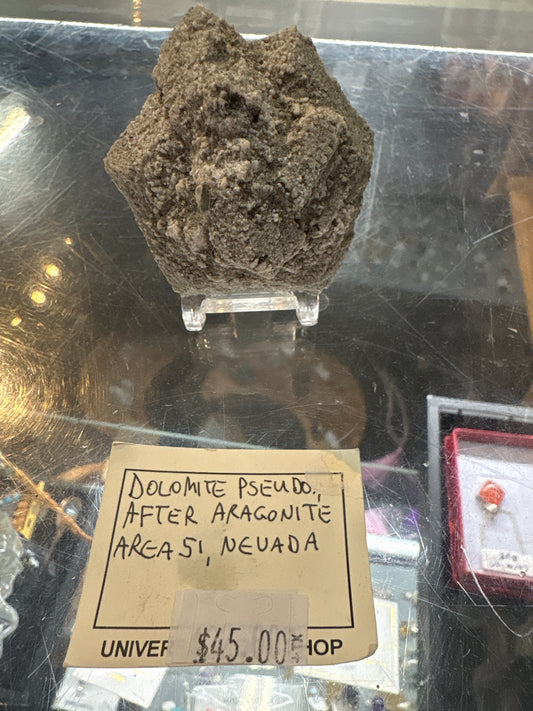 DOLOMITE PSEUDO.,
AFTER ARAGONITE
AREA 51, NEVADA
$45.00
UNIVER HOP